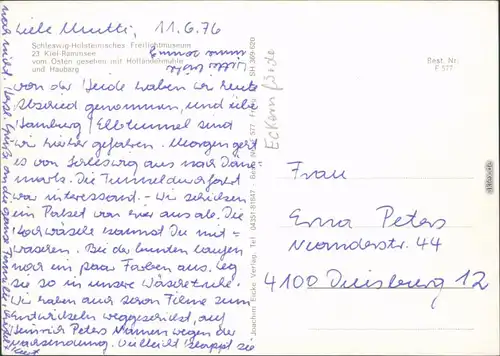 Liebe Mutti, 11.6.76
Schleswig-Holsteinisches Freilichtmuseum
23 Kiel-Rammsee
vom Osten gesehen mit Holländermühle
und Hauberg
von der Heide haben wir heute
Abschied genommen, und über
Hamburg / Elbtunnel sind
wir hierher gefahren. Morgen geht
es von Schleswig aus nach Däne-
mark. Die Tunneldurchfahrt
war interessant. - Wir schicken
ein Paket von hier aus ab. Die
Kochwäsche kannst Du mit-
waschen. Bei der bunten laufen
noch ein paar Farben aus. Leg
sie so in unsere Wäschetruhe.
Wir haben auch schon Filme zum
Entwickeln weggeschickt, auf
Heinrich Peters Namen wegen der
Nachsendung. Vielleicht klappt sie
noch nicht. Herzl. Grüße an die ganze Familie
Eckernförde
Joachim Eicke Verlag, Tel. 04351/81847
Best. Nr.
F 577
Frau
Erna Peters
Neanderstr. 44
4100 Duisburg 12